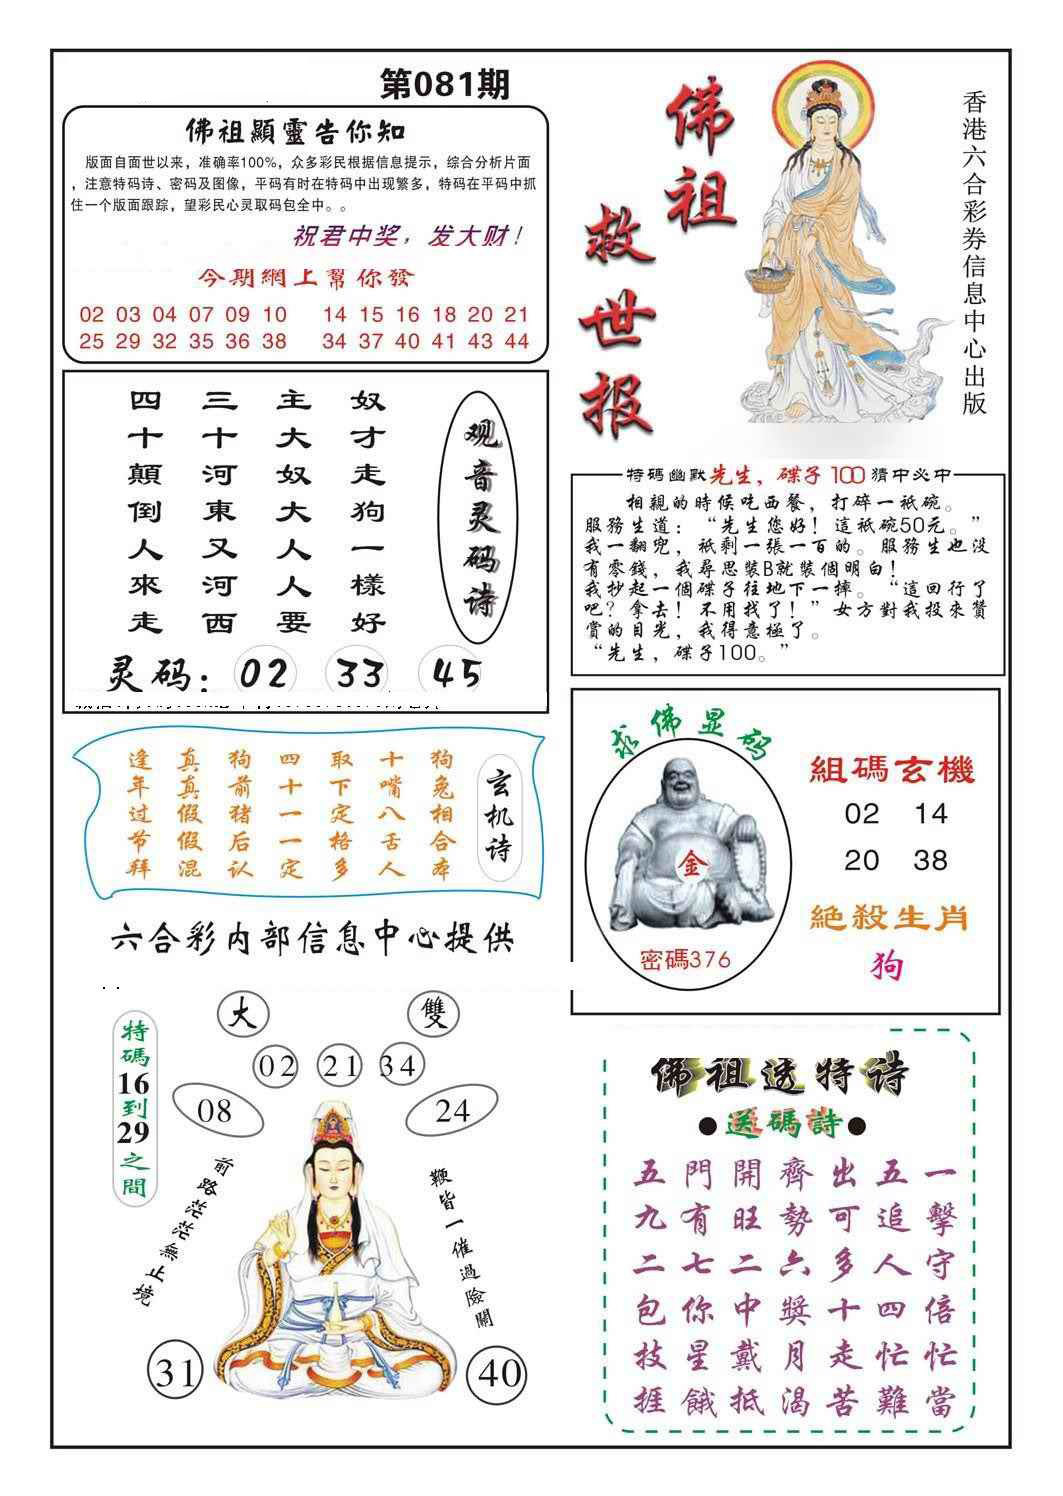 第081期
佛祖顯靈告你知
版面自面世以来，准确率100%，众多彩民根据信息提示，综合分析片面
，注意特码诗、密码及图像，平码有时在特码中出现繁多，特码在平码中抓
住一个版面跟踪，望彩民心灵取码包全中。。
祝君中奖，发大财！
今期網上幫你發
02 03 04 07 09 10 14 15 16 18 20 21
25 29 32 35 36 38 34 37 40 41 43 44
佛祖
救世报
香港六合彩券信息中心出版
观音灵码诗
奴才走狗一樣好
主大奴大人人要
三十河東又河西
四十顛倒人來走
灵码：02 33 45
特碼幽默先生，碟子100猜中必中
相親的時候吃西餐，打碎一祇碗。
服務生道：“先生您好！這祇碗50元。”
我一翻兜，祇剩一張一百的。服務生也没
有零錢，我尋思裝B就裝個明白！
我抄起一個碟子往地下一摔。“這回行了
吧？拿去！不用找了！”女方對我投來贊
賞的目光，我得意極了。
“先生，碟子100。”
玄机诗
狗兔相合本
十嘴八舌人
取下定格多
四十一一定
狗前猪后认
真真假假混
逢年过节拜
求佛显码
金
密碼376
組碼玄機
02 14
20 38
絕殺生肖
狗
六合彩内部信息中心提供
特碼16到29之間
大
雙
02 21 34
08
24
前路茫茫無止境
鞭皆一催過險關
31
40
佛祖透特诗
●送碼詩●
五門開齊出五一
九有旺勢可追擊
二七二六多人守
包你中獎十四倍
技星戴月走忙忙
捱餓抵渴苦難當